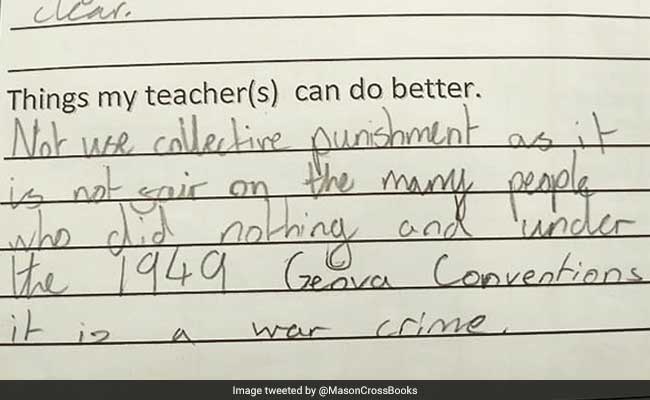 clear.
Things my teacher(s) can do better.
Not use collective punishment as it
is not fair on the many people
who did nothing and under
the 1949 Genova Conventions
it is a war crime.
Image tweeted by @MasonCrossBooks